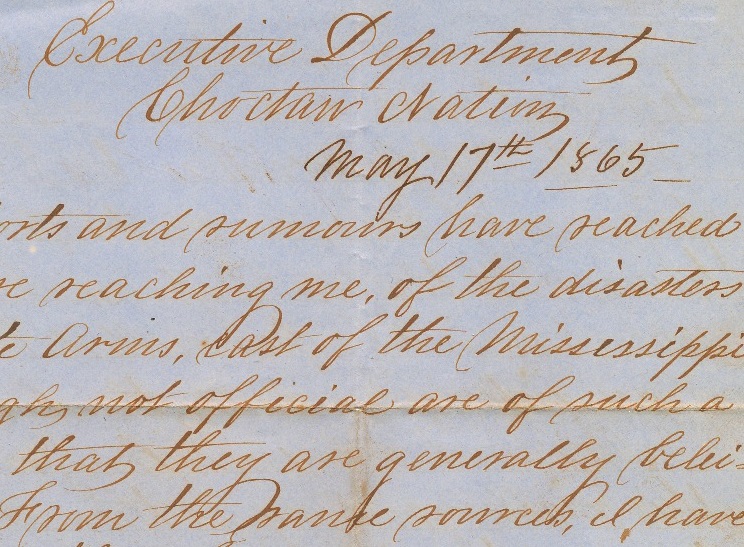 Executive Department
Choctaw Nation
May 17th 1865
orts and rumours have reached
re reaching me, of the disasters
te Arms, east of the Mississippi
gh, not official are of such a
that they are generally belei-
From the same sources, I have